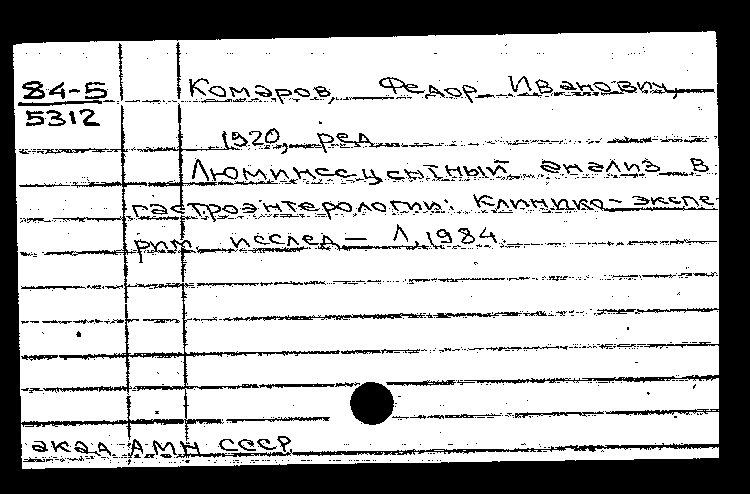 84-5
5312
Комаров, Федор Иванович,
1920, ред
Люминесцентный анализ в
гастроэнтерологии: Клинико-экспе-
рим. исслед — Л, 1984.
акад АМН СССР